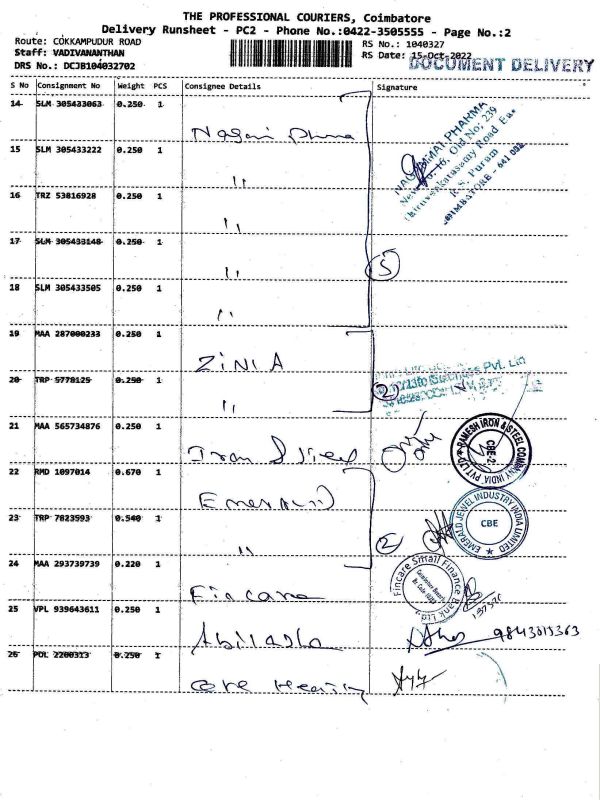 THE PROFESSIONAL COURIERS, Coimbatore
Delivery Runsheet - PC2 - Phone No.:0422-3505555 - Page No.:2
Route: COKKAMPUDUR ROAD
Staff: VADIVANANTHAN
DRS No.: DCJB104032702
RS No.: 1040327
RS Date: 15-Oct-2022
DOCUMENT DELIVERY
S No Consignment No Weight PCS Consignee Details Signature
14 SLM 305433063 0.250 1
15 SLM 305433222 0.250 1 "
16 TRZ 53816928 0.250 1 "
17 SLM 305433148 0.250 1 "
18 SLM 305433505 0.250 1 "
5
NAGAMMAI PHARMA
New No: 16, Old No: 239
Thiruvenkatasamy Road East
R.S. Puram
COIMBATORE - 641 002
19 MAA 287000233 0.250 1 ZINIA
20 TRP 5778125 0.250 1 "
2
Pvt. Ltd
21 MAA 565734876 0.250 1
RAMESH IRON & STEEL COMPANY INDIA PVT LTD
CBE-2
22 RMD 1097014 0.670 1 Emerald
23 TRP 7023593 0.540 1 "
2
EMERALD JEWEL INDUSTRY INDIA LIMITED
CBE
24 MAA 293739739 0.220 1 Fincare
Fincare Small Finance Bank Ltd
25 VPL 939643611 0.250 1 Abilasha
9843015363
26 POL 2200313 0.250 1 Care Health